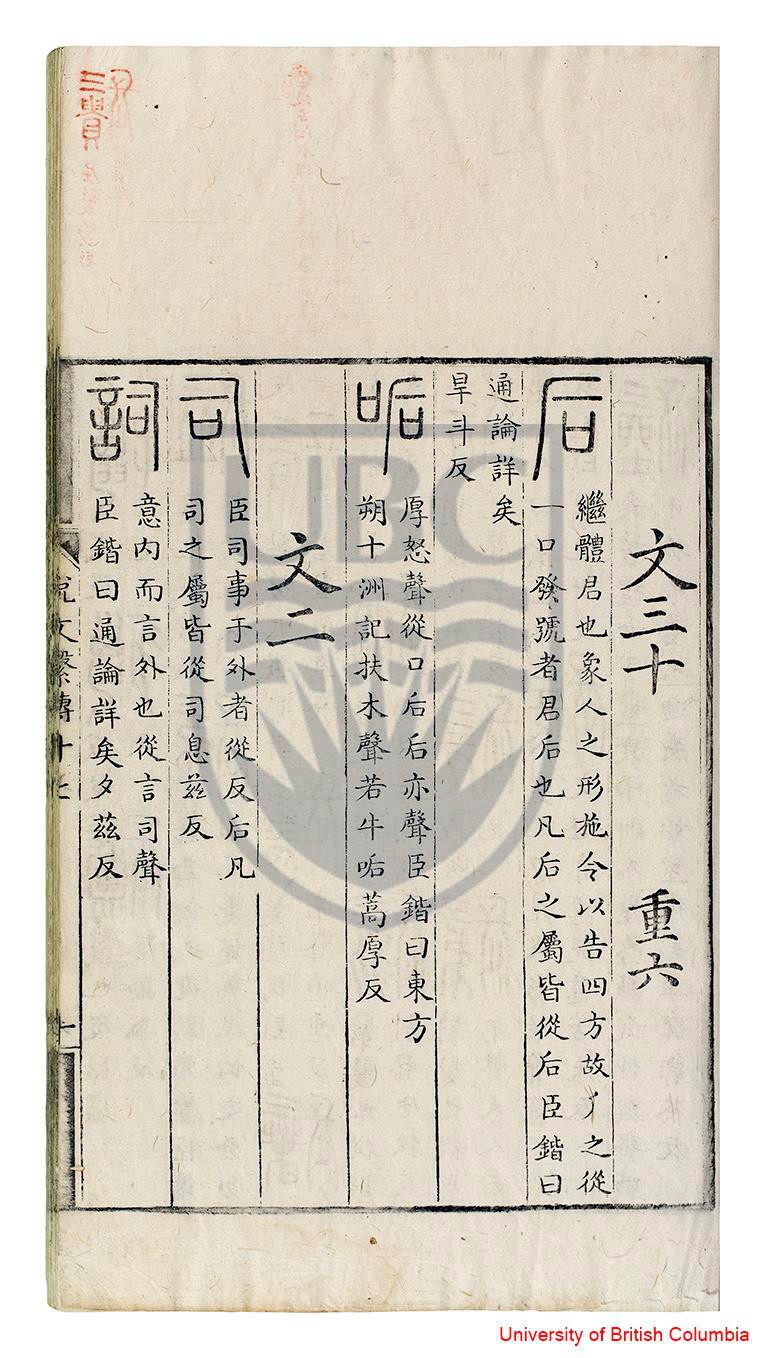 文三十 重六
后 繼體君也象人之形施令以告四方故𠂆之從
一口發號者君后也凡后之屬皆從后臣鍇曰
通論詳矣
旱斗反
㖃 厚怒聲從口后后亦聲臣鍇曰東方
朔十洲記扶木聲若牛㖃蒿厚反
文二
司 臣司事于外者從反后凡
司之屬皆從司息茲反
詞 意内而言外也從言司聲
臣鍇曰通論詳矣夕茲反
說文繫傳十七
UBC
University of British Columbia